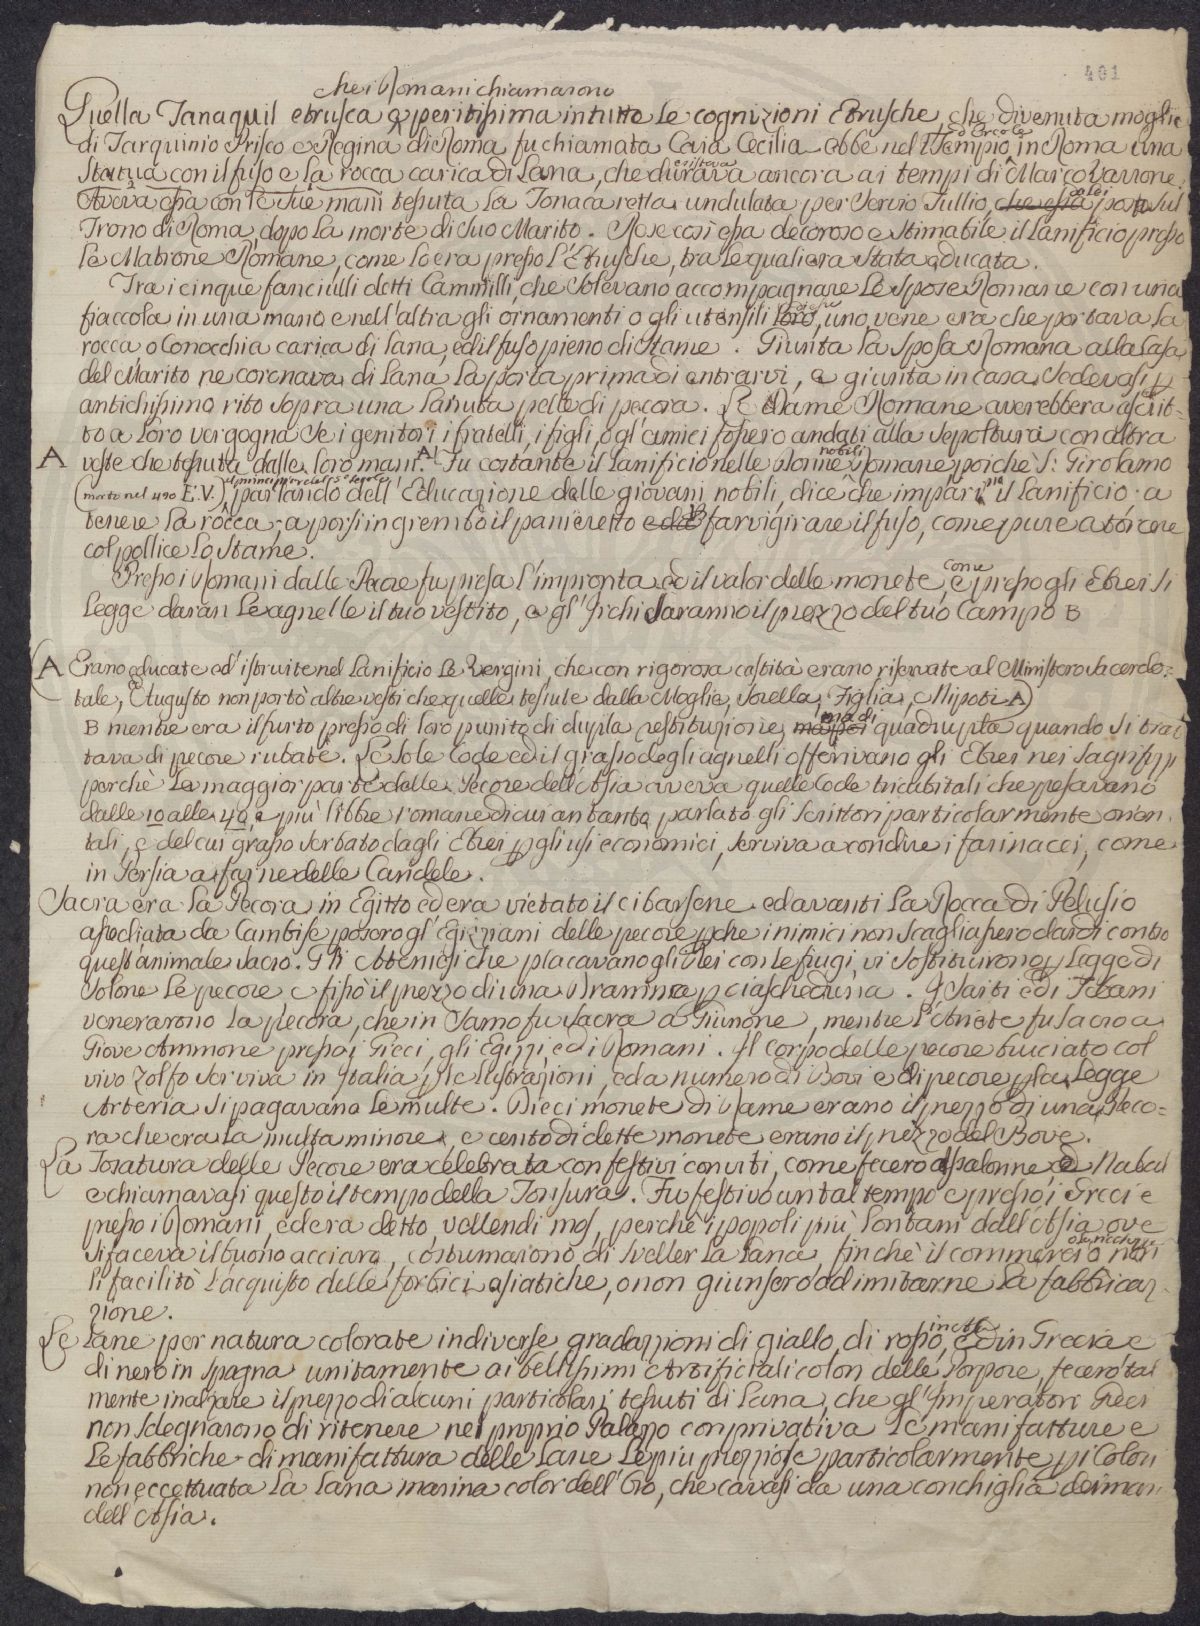 401
che i Romani chiamarono
Quella Tanaquil etrusca e peritissima in tutte le cognizioni Etrusche, che divenuta moglie
di Tarquinio Prisco e Regina di Roma fu chiamata Caia Cecilia ebbe nel Tempio d'Ercole in Roma una
Statua con il fuso e la rocca carica di Lana, che durava esisteva ancora ai tempi di Marco Varrone.
Aveva essa con le sue mani tessuta la Tonaca retta undulata per Servio Tullio, che essa colei pose sul
Trono di Roma, dopo la morte di suo Marito. Rese così essa decoroso e stimabile il Lanificio presso
le Matrone Romane, come lo era presso l'Etrusche, tra le quali era stata educata.
Tra i cinque fanciulli detti Cammilli, che solevano accompagnare le Spose Romane con una
fiaccola in una mano, e nell'altra gli ornamenti o gli utensili loro, uno vene era che portava la
rocca o Conocchia carica di lana, ed il fuso pieno di Stame. Giunta la Sposa Romana alla Casa
del Marito ne coronava di Lana la porta prima di entrarvi, e giunta in casa sedevasi p
antichissimo rito sopra una lanuta pelle di pecora. Le Dame Romane averebbero ascrit-
to a loro vergogna se i genitori, i fratelli, i figli, o gl'amici fossero andati alla sepoltura con altra
A veste che tessuta dalle loro mani. A) Fu costante il Lanificio nelle Donne nobili Romane poichè S. Girolamo
(morto nel 420 E.V.) parlando dell'Educazione delle giovani nobili, dice che impari il Lanificio a
tenere la rocca, a porsi in grembo il panieretto e di farvi girare il fuso, come pure a torcere
col pollice lo Stame.
Presso i Romani dalle Pecore fu presa l'impronta ed il valor delle monete, Come e presso gli Ebrei si
legge daran le agnelle il tuo vestito, e gl'Irchi saranno il prezzo del tuo Campo B
(A Erano educate ed istruite nel Lanificio le Vergini, che con rigorosa castità erano riservate al Ministero Sacerdo=
tale, e Augusto non portò altre vesti che quelle tessute dalla Moglie, Sorella, Figlia, e Nipoti A)
B mentre era il furto presso di loro punito di dupla restituzione, ma di quadrupla quando si trat
tava di pecore rubate. Le sole Code ed il grasso degli agnelli offerivano gli Ebrei nei sagrifizj
perchè la maggior parte delle Pecore dell'Asia aveva quelle Code tricubitali che pesavano
dalle 10 alle 40 e più libbre romane di cui an tanto parlato gli Scrittori particolarmente orien
tali, e del cui grasso serbato dagli Ebrei p gli usi economici, serviva a condire i farinacci, come
in Persia a farne delle Candele.
Sacra era la Pecora in Egitto ed era vietato il cibarsene ed avanti la Rocca di Pelusio
assediata da Cambise posero gl'Egizziani delle pecore pche i nimici non scagliassero dardi contro
quest'animale sacro. Gli Ateniesi che placavano gli Dei con le fiugi, vi sostituirono p Legge di
Solone le pecore, e fissò il prezzo di una Dramma p ciascheduna. I Saiti ed i Tebani
venerarono la pecora, che in Samo fu sacra a Giunone, mentre l'Ariete fu sacro a
Giove Ammone presso i Greci, gli Egizzi, ed i Romani. Il corpo delle pecore bruciato col
vivo zolfo serviva in Italia p le lustrazioni, ed a numero di Bovi e di pecore p la Legge
Arteria si pagavano le multe. Dieci monete di Rame erano il prezzo di una Peco=
ra che era la multa minore, e cento di dette monete erano il prezzo del Bove.
La Tosatura delle Pecore era celebrata con festivi conviti, come fecero Assalonne, e Nabal
e chiamavasi questo il tempo della Tonsura. Fu festivo un tal tempo e presso i Greci e
presso i Romani, ed era detto, vellendi mos, perchè i popoli più lontani dall'Asia ove
si faceva il buono acciaro, costumarono di sveller la lana, finchè il commercio non
li facilitò l'acquisto delle forbici asiatiche, o non giunsero ad imitarne la fabbrica=
zione.
Le Lane per natura colorate in diverse gradazioni di giallo, di rosso, ed in Grecia e
di nero in Spagna unitamente ai bellissimi Artificiali colori delle Porpore, fecero tal
mente inalzare il prezzo di alcuni particolari tessuti di Lana, che gl'Imperatori Greci
non sdegnarono di ritenere nel proprio Palazzo con privativa le manifatture e
le fabbriche di manifattura delle Lane le più preziose particolarmente p i Colori
non eccettuata la Lana marina color dell'Oro, che cavasi da una conchiglia dei mari
dell'Asia.